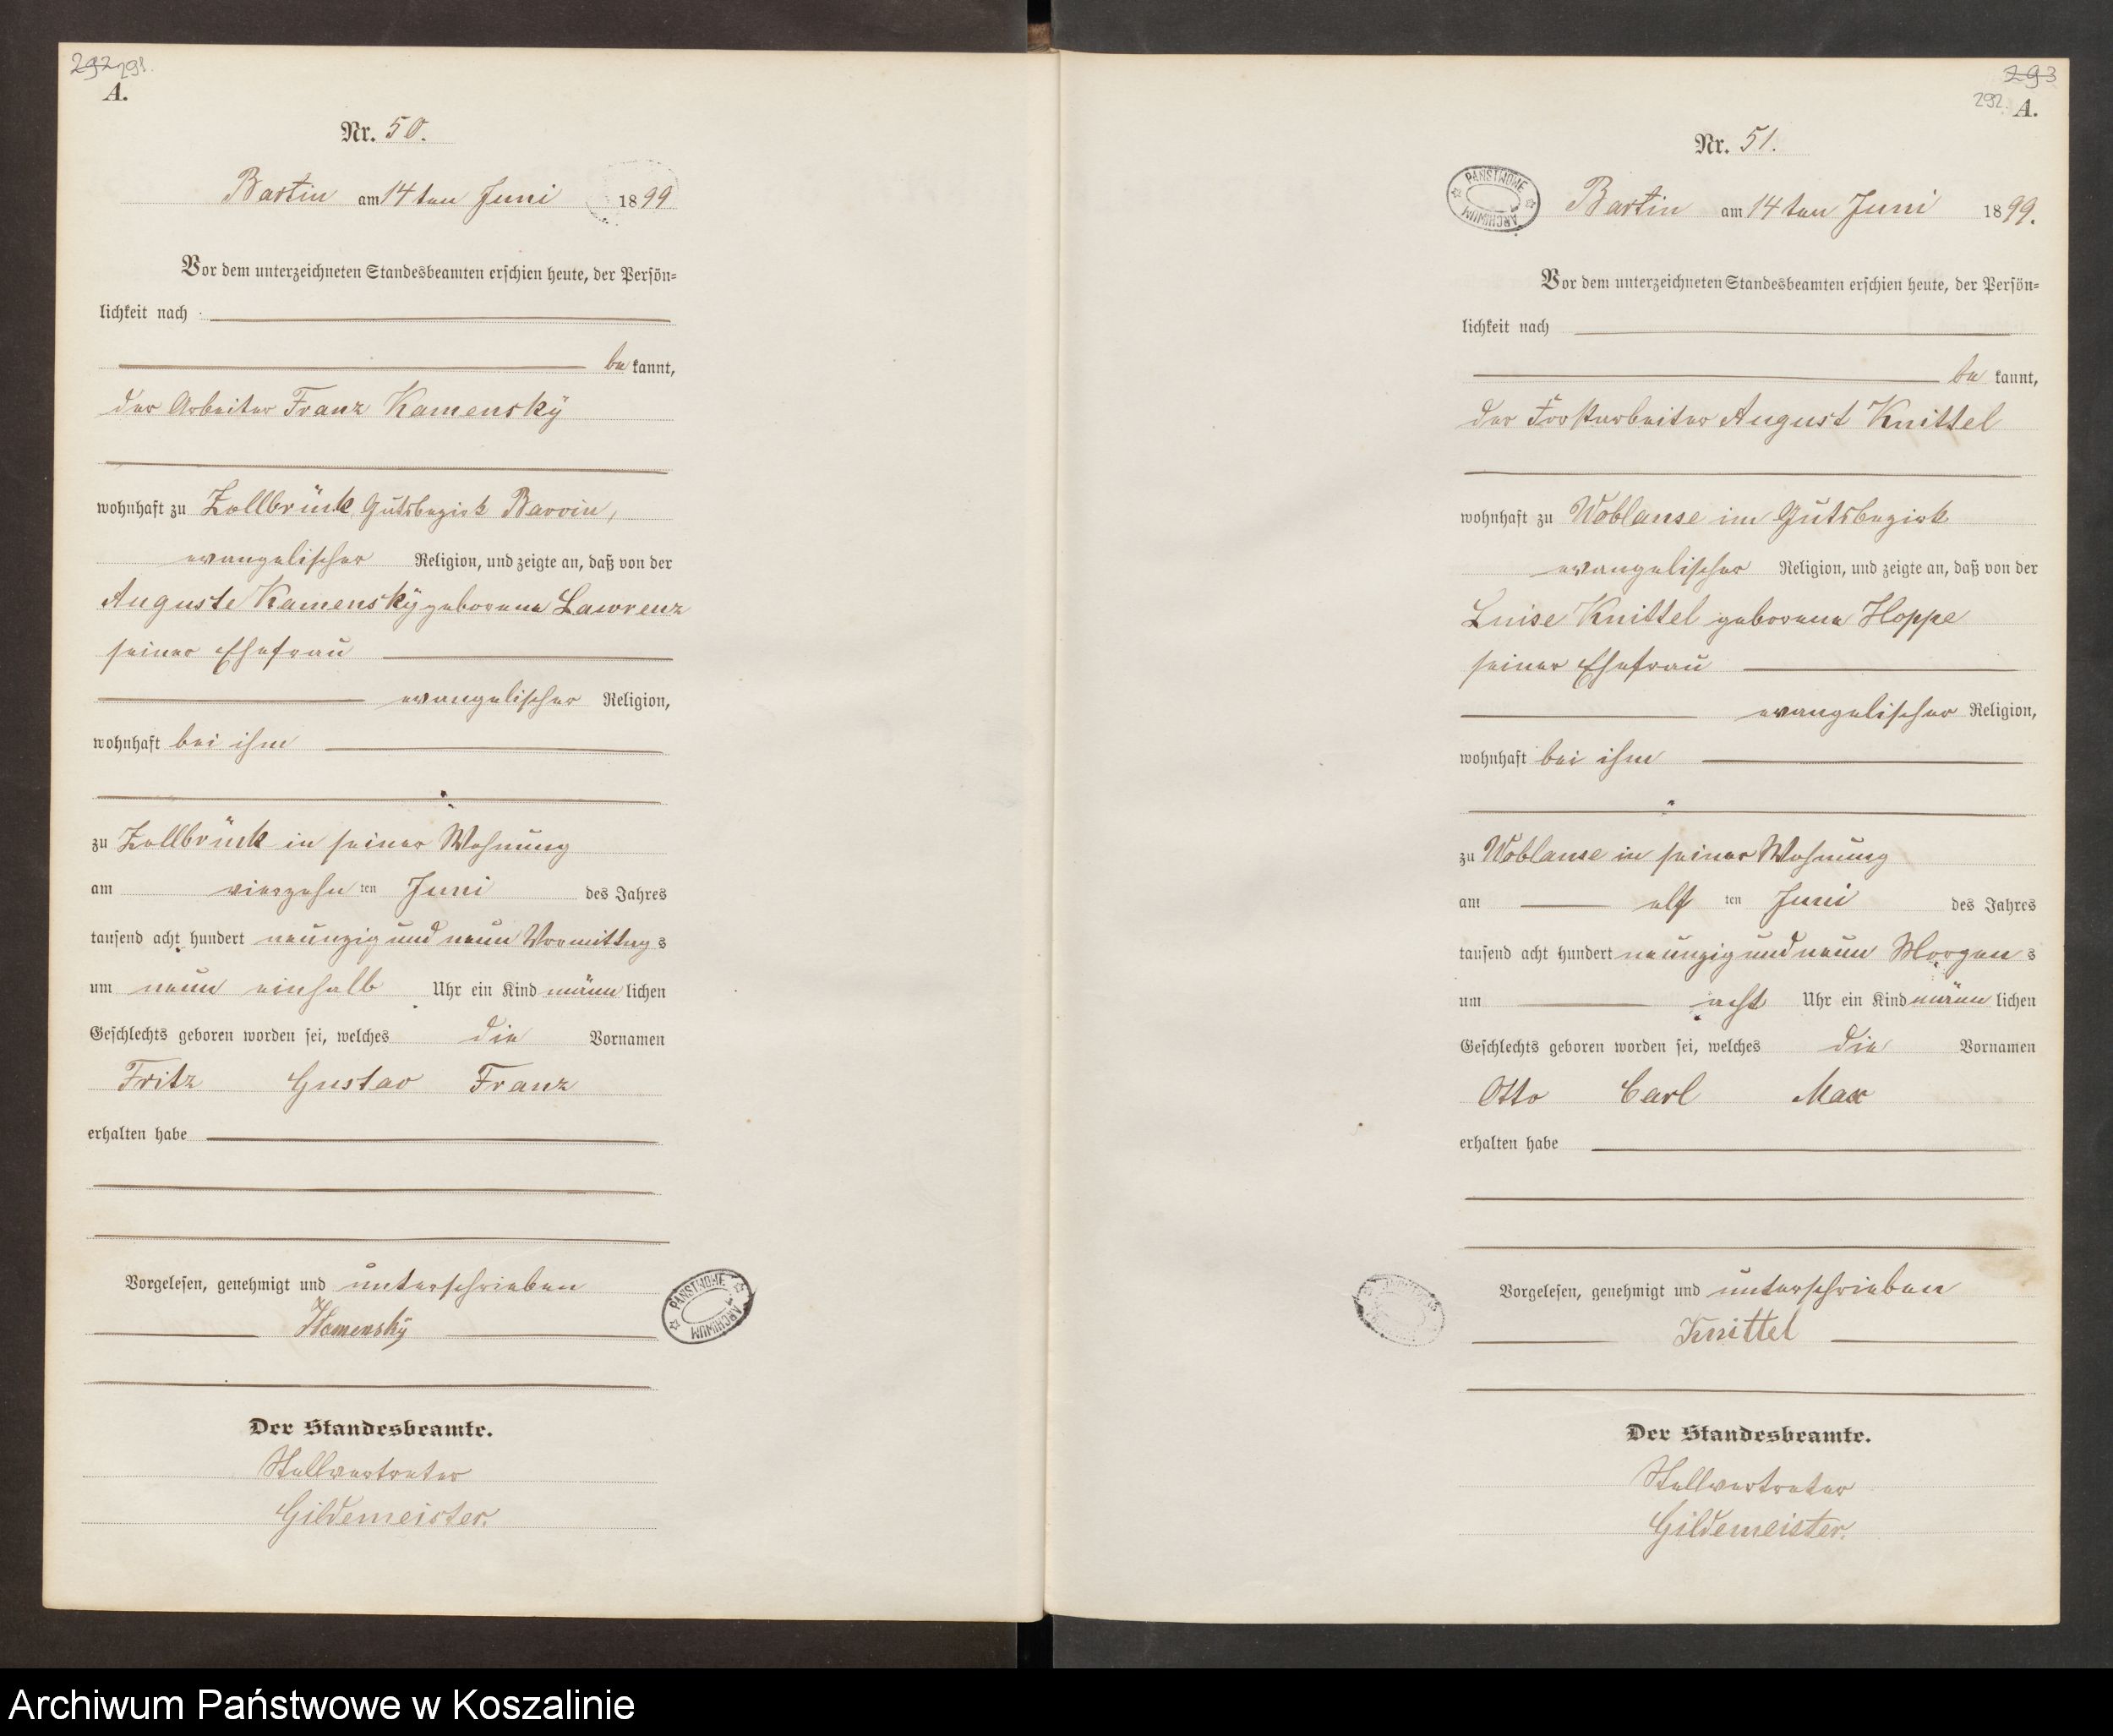 292 291.
A.
Nr. 50.
Bartin am 14ten Juni 1899
Vor dem unterzeichneten Standesbeamten erschien heute, der Persön=
lichkeit nach
be kannt,
der Arbeiter Franz Kamensky
wohnhaft zu Zollbrück, Gutsbezirk Barvin,
evangelischer Religion, und zeigte an, daß von der
Auguste Kamensky geborene Lawrenz
seiner Ehefrau
evangelischer Religion,
wohnhaft bei ihm
zu Zollbrück in seiner Wohnung
am vierzehn ten Juni des Jahres
tausend acht hundert neunzig und neun Vormittags
um neun einhalb Uhr ein Kind männlichen
Geschlechts geboren worden sei, welches die Vornamen
Fritz Gustav Franz
erhalten habe
Vorgelesen, genehmigt und unterschrieben
Kamensky
ARCHIWUM PAŃSTWOWE
Der Standesbeamte.
Stellvertreter
Gildemeister.
293
292. A.
Nr. 51.
ARCHIWUM PAŃSTWOWE
Bartin am 14ten Juni 1899.
Vor dem unterzeichneten Standesbeamten erschien heute, der Persön=
lichkeit nach
be kannt,
der Forstarbeiter August Knittel
wohnhaft zu Woblanse im Gutsbezirk
evangelischer Religion, und zeigte an, daß von der
Luise Knittel geborene Hoppe
seiner Ehefrau
evangelischer Religion,
wohnhaft bei ihm
zu Woblanse in seiner Wohnung
am elf ten Juni des Jahres
tausend acht hundert neunzig und neun Morgens
um acht Uhr ein Kind männlichen
Geschlechts geboren worden sei, welches die Vornamen
Otto Carl Max
erhalten habe
Vorgelesen, genehmigt und unterschrieben
Knittel
Der Standesbeamte.
Stellvertreter
Gildemeister.
Archiwum Państwowe w Koszalinie